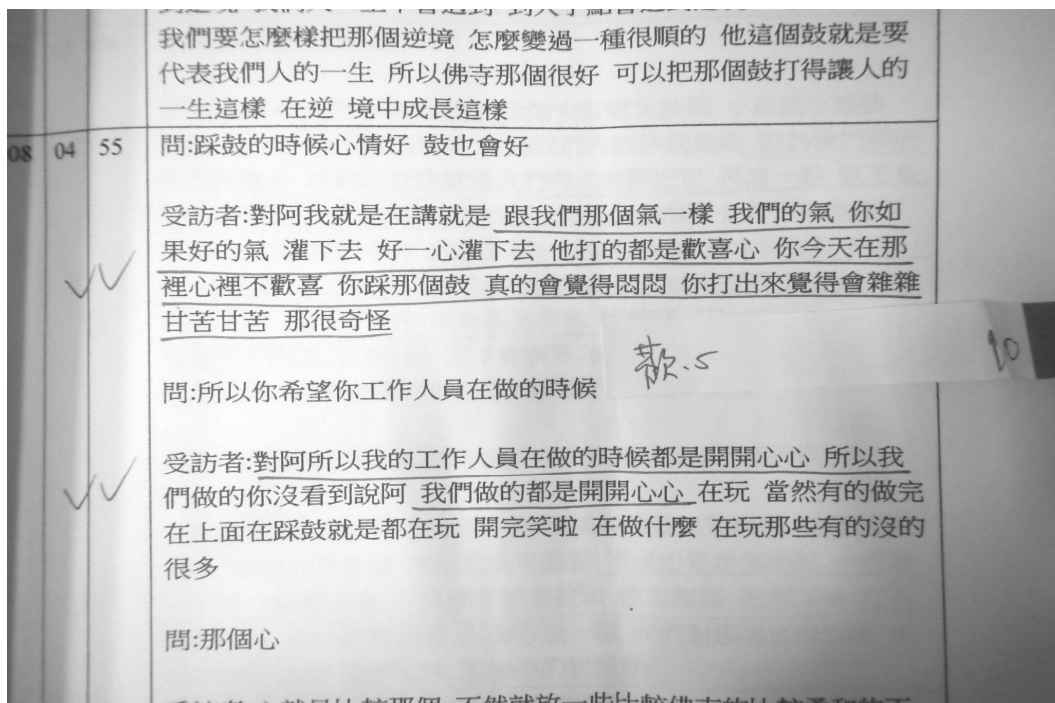 我們要怎麼樣把那個逆境 怎麼變過一種很順的 他這個鼓就是要
代表我們人的一生 所以佛寺那個很好 可以把那個鼓打得讓人的
一生這樣 在逆 境中成長這樣
08 04 55 問:踩鼓的時候心情好 鼓也會好
受訪者:對阿我就是在講就是 跟我們那個氣一樣 我們的氣 你如
果好的氣 灌下去 好一心灌下去 他打的都是歡喜心 你今天在那
裡心裡不歡喜 你踩那個鼓 真的會覺得悶悶 你打出來覺得會雜雜
甘苦甘苦 那很奇怪
歡.5 20
問:所以你希望你工作人員在做的時候
受訪者:對阿所以我的工作人員在做的時候都是開開心心 所以我
們做的你沒看到說阿 我們做的都是開開心心 在玩 當然有的做完
在上面在踩鼓就是都在玩 開完笑啦 在做什麼 在玩那些有的沒的
很多
問:那個心